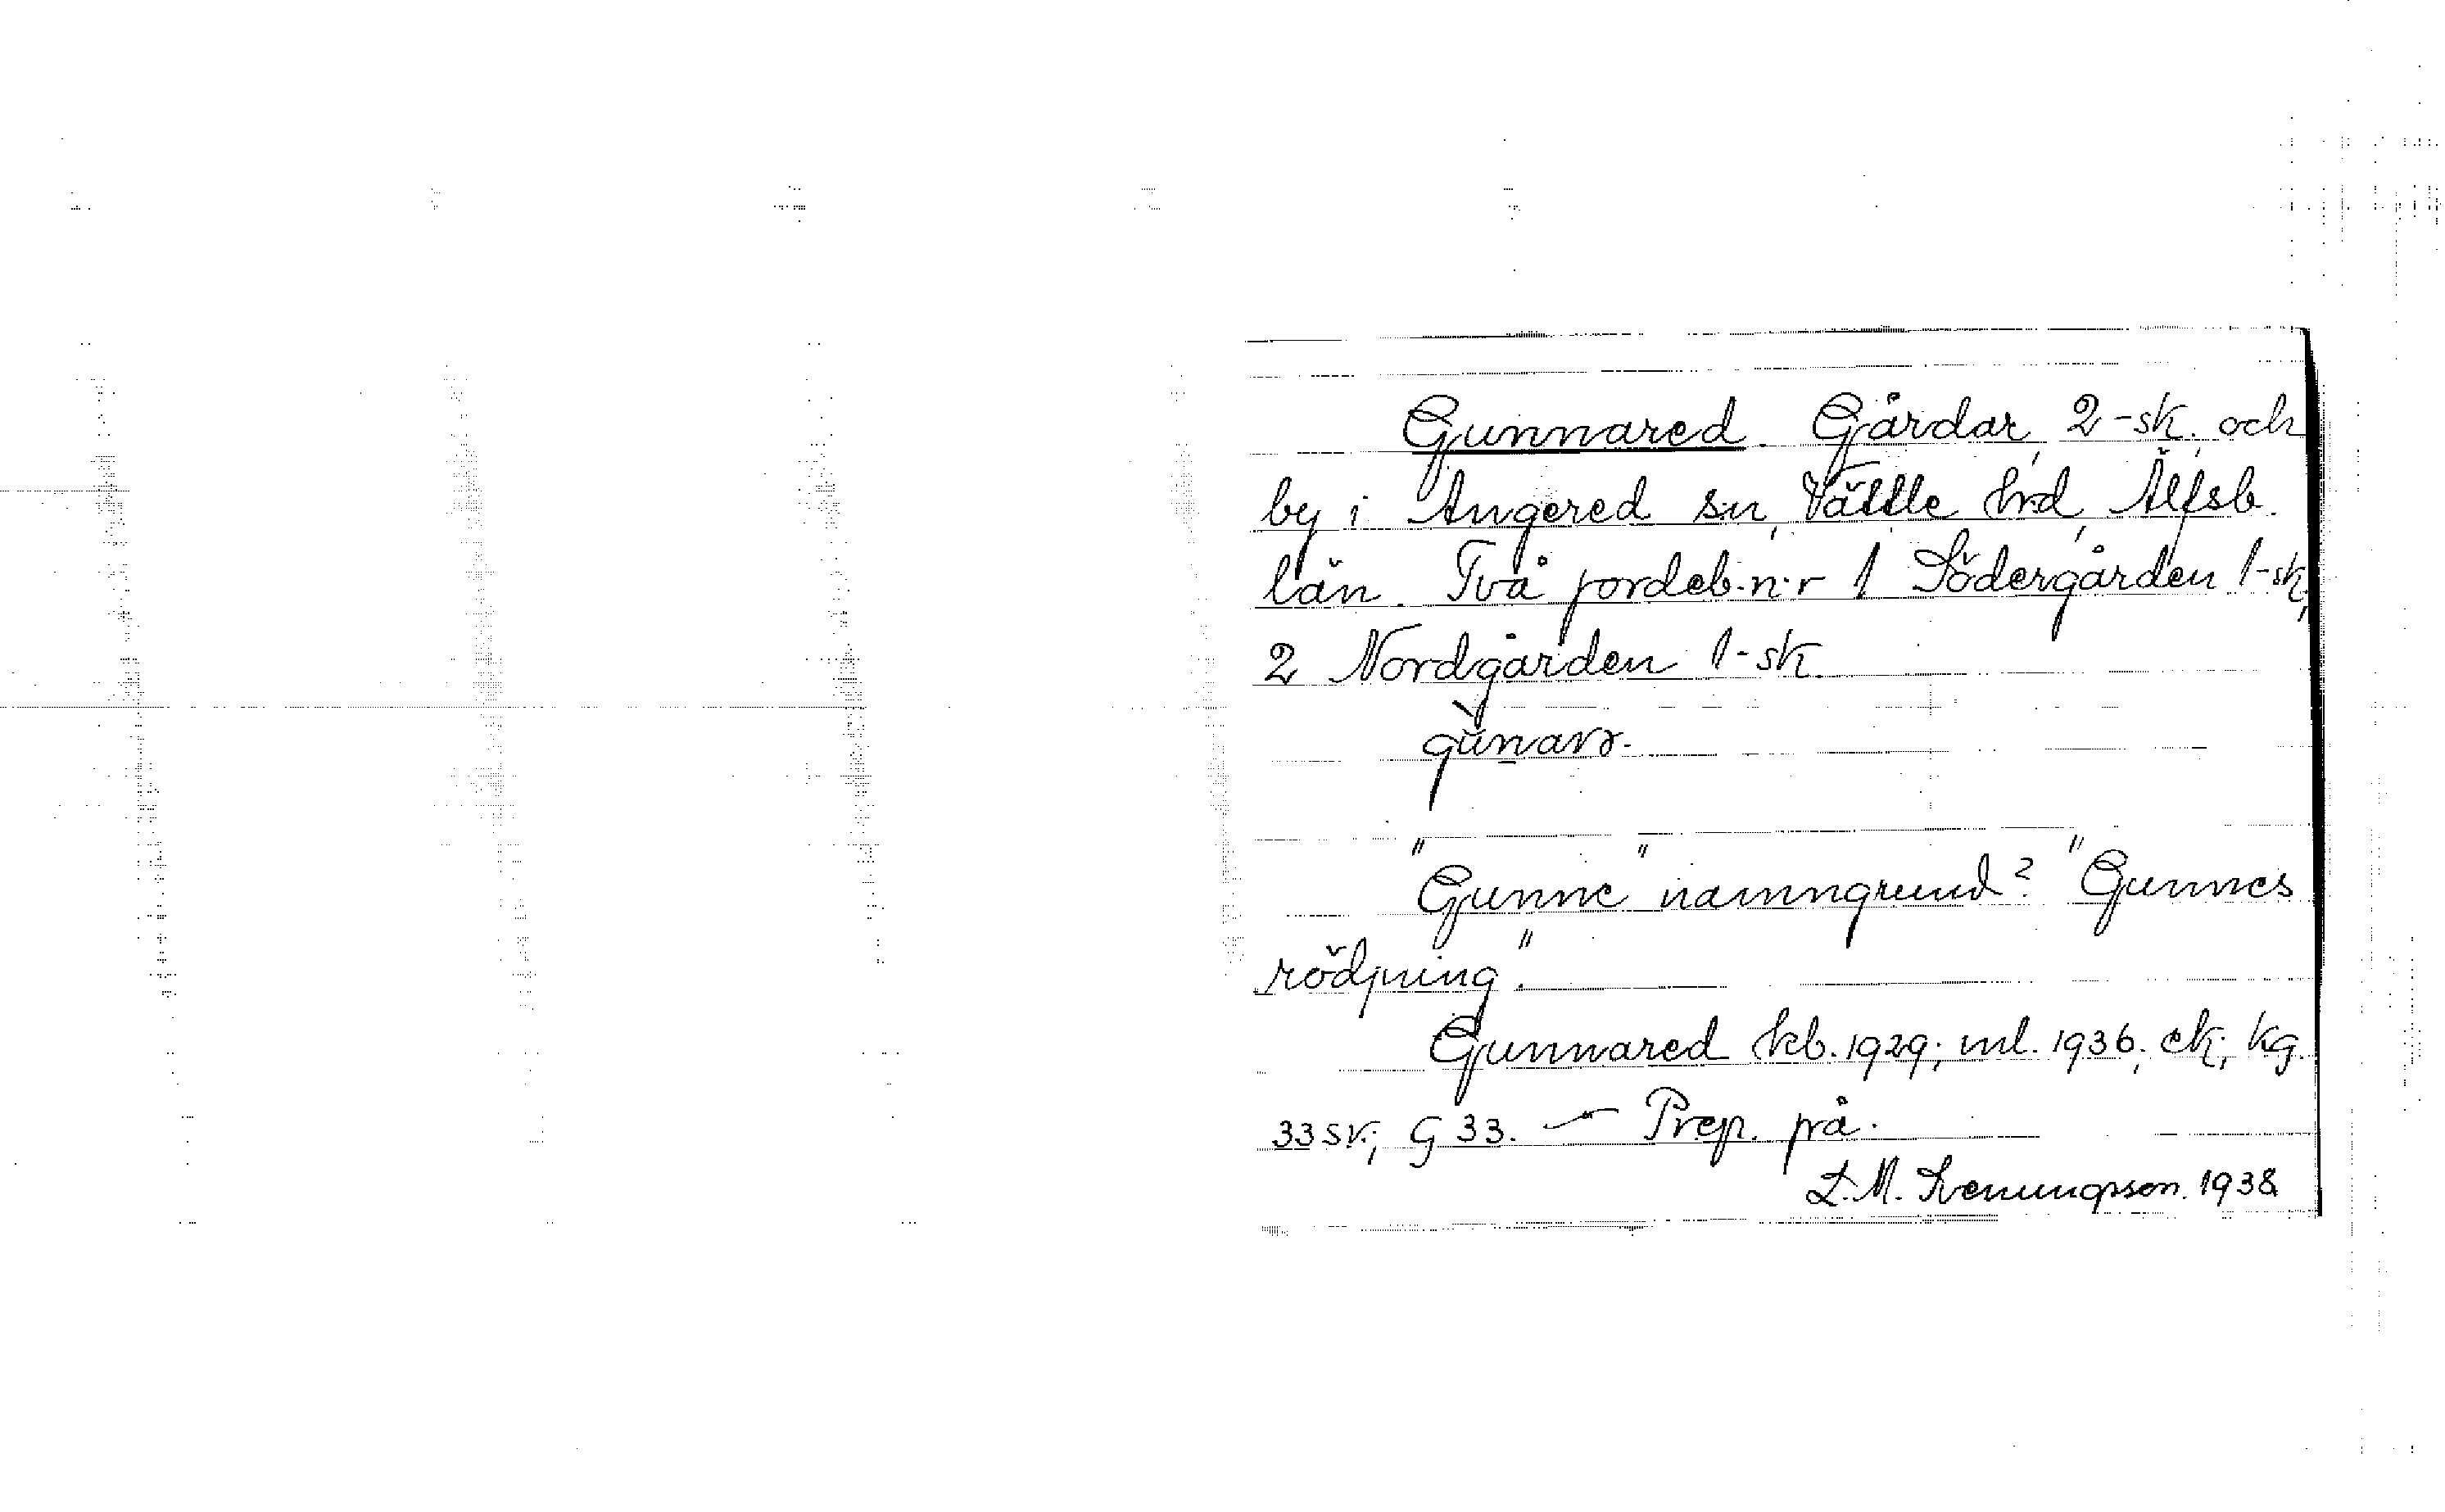 Gunnared. Gårdar, 2-sk., och
by i Angered sn, Vättle hrd, Älfsb.
län. Två jordeb.n:r 1 Södergården 1-sk,
2 Nordgården 1-sk.
"Gunne" namngrund? "Gunnes
rödjning".
Gunnared kb. 1929; ml. 1936; ek; kg.
33 sv; G 33. — Prep. på.
L. M. Svenungsson. 1938